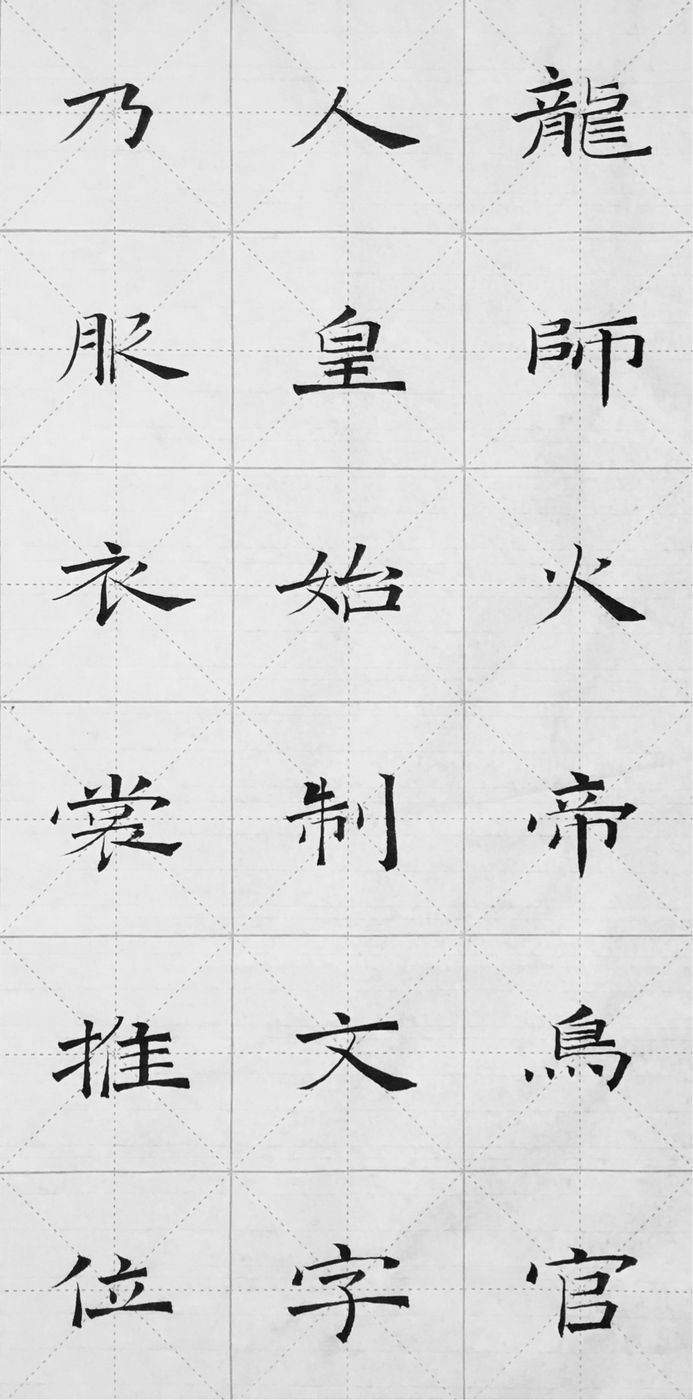 龍師火帝鳥官
人皇始制文字
乃服衣裳推位